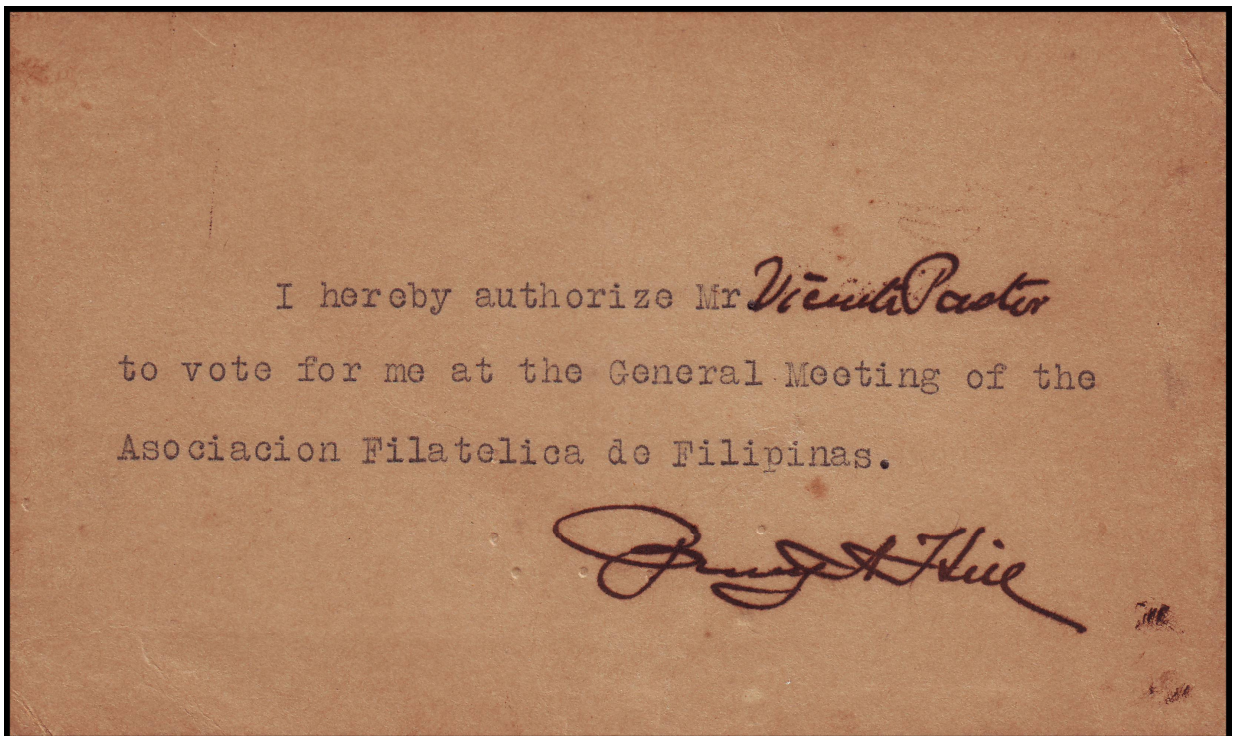 I hereby authorize Mr. Vicente Pastor
to vote for me at the General Meeting of the
Asociacion Filatelica de Filipinas.
Percy A Hill